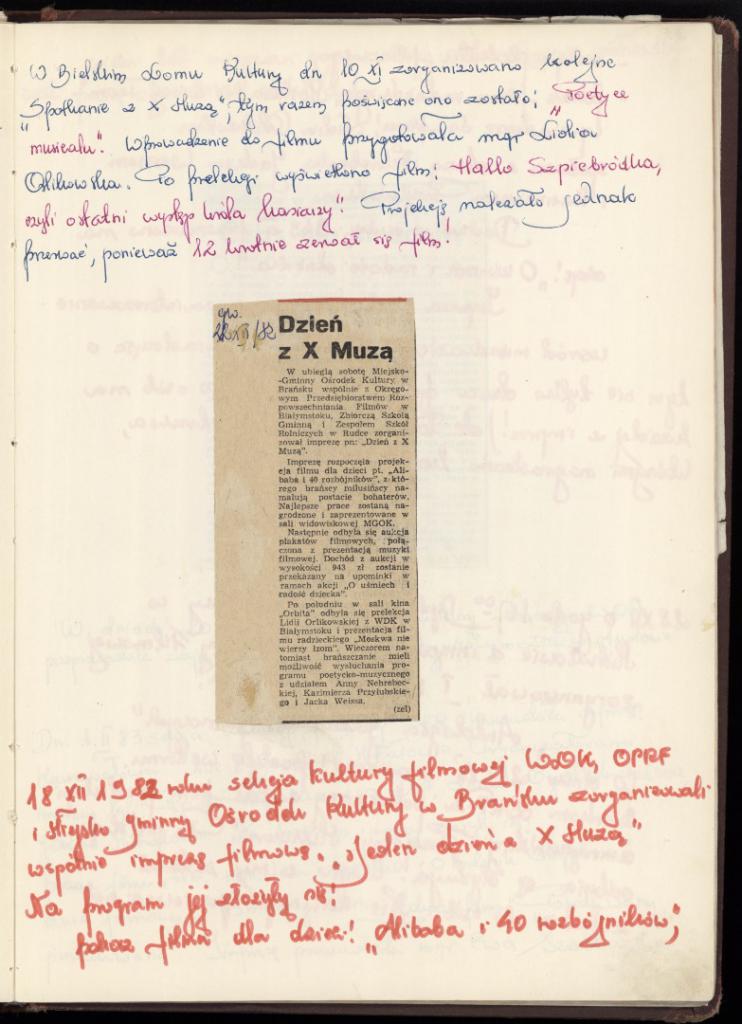 W Bielskim Domu Kultury dn 10 XI zorganizowano kolejne
"Spotkanie z X Muzą", tym razem poświęcone ono zostało; "Poetyce
musicalu". Wprowadzenie do filmu przygotowała mgr Lidia
Orlikowska. Po prelekcji wyświetlono film; Hallo Szpicbródka,
czyli ostatni występ króla kasiarzy! Projekcję należało jednak
przerwać, ponieważ 12 krotnie zerwał się film!
gw.
22 XII/82
Dzień
z X Muzą
W ubiegłą sobotę Miejsko-
-Gminny Ośrodek Kultury w
Brańsku wspólnie z Okręgo-
wym Przedsiębiorstwem Roz-
powszechniania Filmów w
Białymstoku, Zbiorczą Szkołą
Gminną i Zespołem Szkół
Rolniczych w Rudce zorgani-
zował imprezę pn: „Dzień z X
Muzą".
Imprezę rozpoczęła projek-
cja filmu dla dzieci pt. „Ali-
baba i 40 rozbójników", z któ-
rego brańscy milusińscy na-
malują postacie bohaterów.
Najlepsze prace zostaną na-
grodzone i zaprezentowane w
sali widowiskowej MGOK.
Następnie odbyła się aukcja
plakatów filmowych, połą-
czona z prezentacją muzyki
filmowej. Dochód z aukcji w
wysokości 943 zł zostanie
przekazany na upominki w
ramach akcji „O uśmiech i
radość dziecka".
Po południu w sali kina
„Orbita" odbyła się prelekcja
Lidii Orlikowskiej z WDK w
Białymstoku i prezentacja fil-
mu radzieckiego „Moskwa nie
wierzy łzom". Wieczorem na-
tomiast brańszczanie mieli
możliwość wysłuchania pro-
gramu poetycko-muzycznego
z udziałem Anny Nehrebec-
kiej, Kazimierza Przyłubskie-
go i Jacka Weissa.
(zel)
18 XII 1982 roku sekcja kultury filmowej WDK, OPRF
i Miejsko gminny Ośrodek Kultury w Brańsku zorganizowali
wspólnie imprezę filmową. "Jeden dzień z X Muzą"
Na program jej złożyły się!
pokaz filmu dla dzieci! „Alibaba i 40 rozbójników",